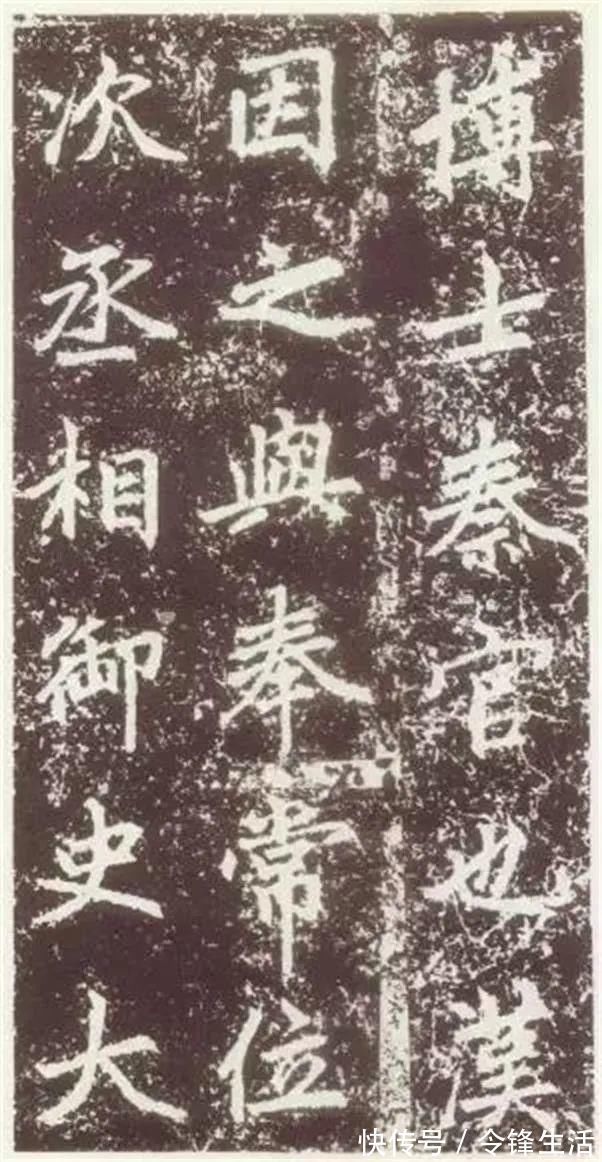 博士秦官也漢
因之與奉常位
次丞相御史大
快传号/令锋生活